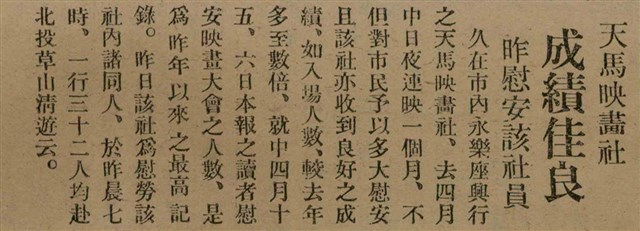 天馬映畵社
成績佳良
昨慰安該社員
久在市內永樂座興行
之天馬映畵社、去四月
中日夜連映一個月、不
但對市民予以多大慰安
且該社亦收到良好之成
績、如入場人數、較去年
多至數倍、就中四月十
五、六日本報之讀者慰
安映畫大會之人數、是
爲昨年以來之最高記
錄。昨日該社爲慰勞該
社內諸同人、於昨晨七
時、一行三十二人均赴
北投草山淸遊云。